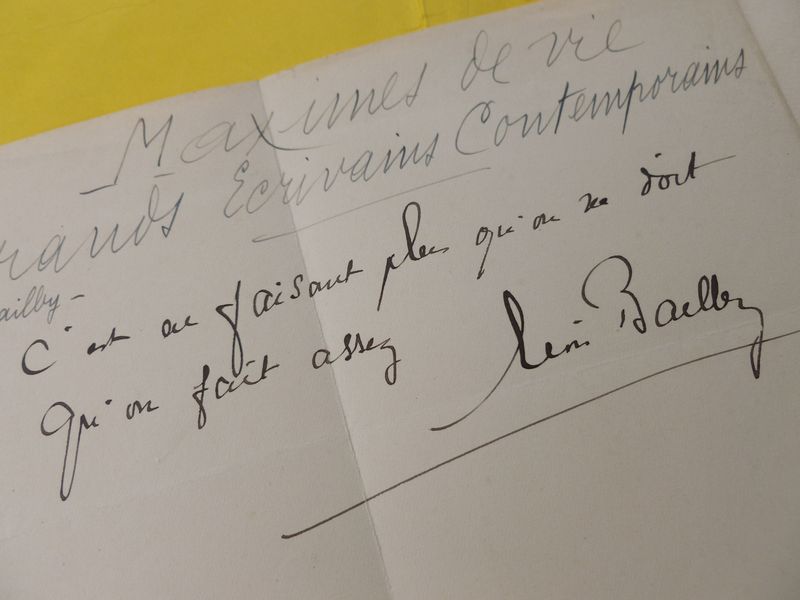 Maximes de vie
rands Ecrivains Contemporains
ailby -
C'est en faisant plus qu'on ne doit
qu'on fait assez
Léon Bailby